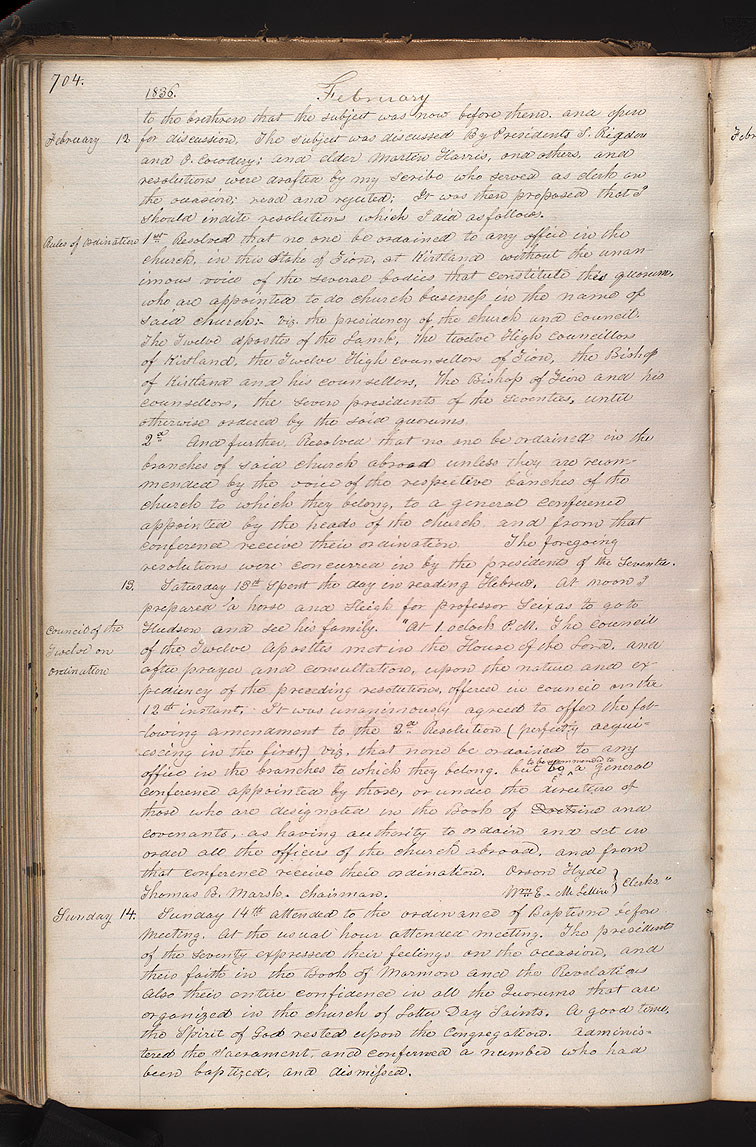 704.
1836.
February
to the brethren that the subject was now before them. and open
February 12 for discussion. The subject was discussed By Presidents S. Rigdon
and O. Cowdery; and elder Martin Harris, and others, and
resolutions were drafted by my scribe who served as clerk on
the occasion; read and rejected; It was then proposed that I
should indite resolutions which I did as follows.
Rules of ordination 1st Resolved that no one be ordained to any office in the
church, in this Stake of Zion, at Kirtland without the unan-
imous voice of the several bodies that constitute this quorum,
who are appointed to do church business in the name of
said church;- viz. the presidency of the church and council.
The Twelve apostles of the Lamb, The twelve High Councillors
of Kirtland, the Twelve High counsellors of Zion, the Bishop
of Kirtland and his counsellors, The Bishop of Zion and his
counsellors, the seven presidents of the seventies, until
otherwise ordered by the said quorums.
2d And further, Resolved that no one be ordained in the
branches of said church abroad unless they are recom-
mended by the voice of the respective banches of the
church to which they belong, to a general conference
appointed by the heads of the church and from that
conference receive their ordination. The foregoing
resolutions were concurred in by the presidents of the Seventies.
13. Saturday 13th Spent the day in reading Hebrew. At noon I
prepared a horse and sleigh for professor Seixas to go to
Council of the Twelve on ordination
Hudson and see his family. "At 1. oclock P.M. The council
of the Twelve Apostles met in the House of the Lord, and
after prayer and consultation, upon the nature and ex-
pediency of the preceding resolutions, offered in council on the
12th instant, It was unanimously agreed to offer the fol-
lowing amendment to the 2d Resolution (perfectly acqui-
escing in the first,) viz. that none be ordained to any
office in the branches to which they belong. but to be recommended to a general
conference appointed by those, or under the direction of
those who are designated in the Book of Doctrine and
covenants, as having authority to ordain and set in
order all the officers of the church abroad. and from
that conference receive their ordination. Orson Hyde
Thomas B. Marsh. chairman. Wm E. McLellin } Clerks"
Sunday 14. Sunday 14th attended to the ordinance of Baptism before
Meeting. At the usual hour attended meeting. The presidents
of the seventy expressed their feelings on the occasion, and
their faith in the Book of Mormon and the Revelations
Also their entire confidence in all the Quorums that are
organized in the church of Latter Day Saints. A good time.
the Spirit of God rested upon the Congregation. adminis-
tered the Sacrament, and confirmed a number who had
been baptized, and dismissed.
Febr